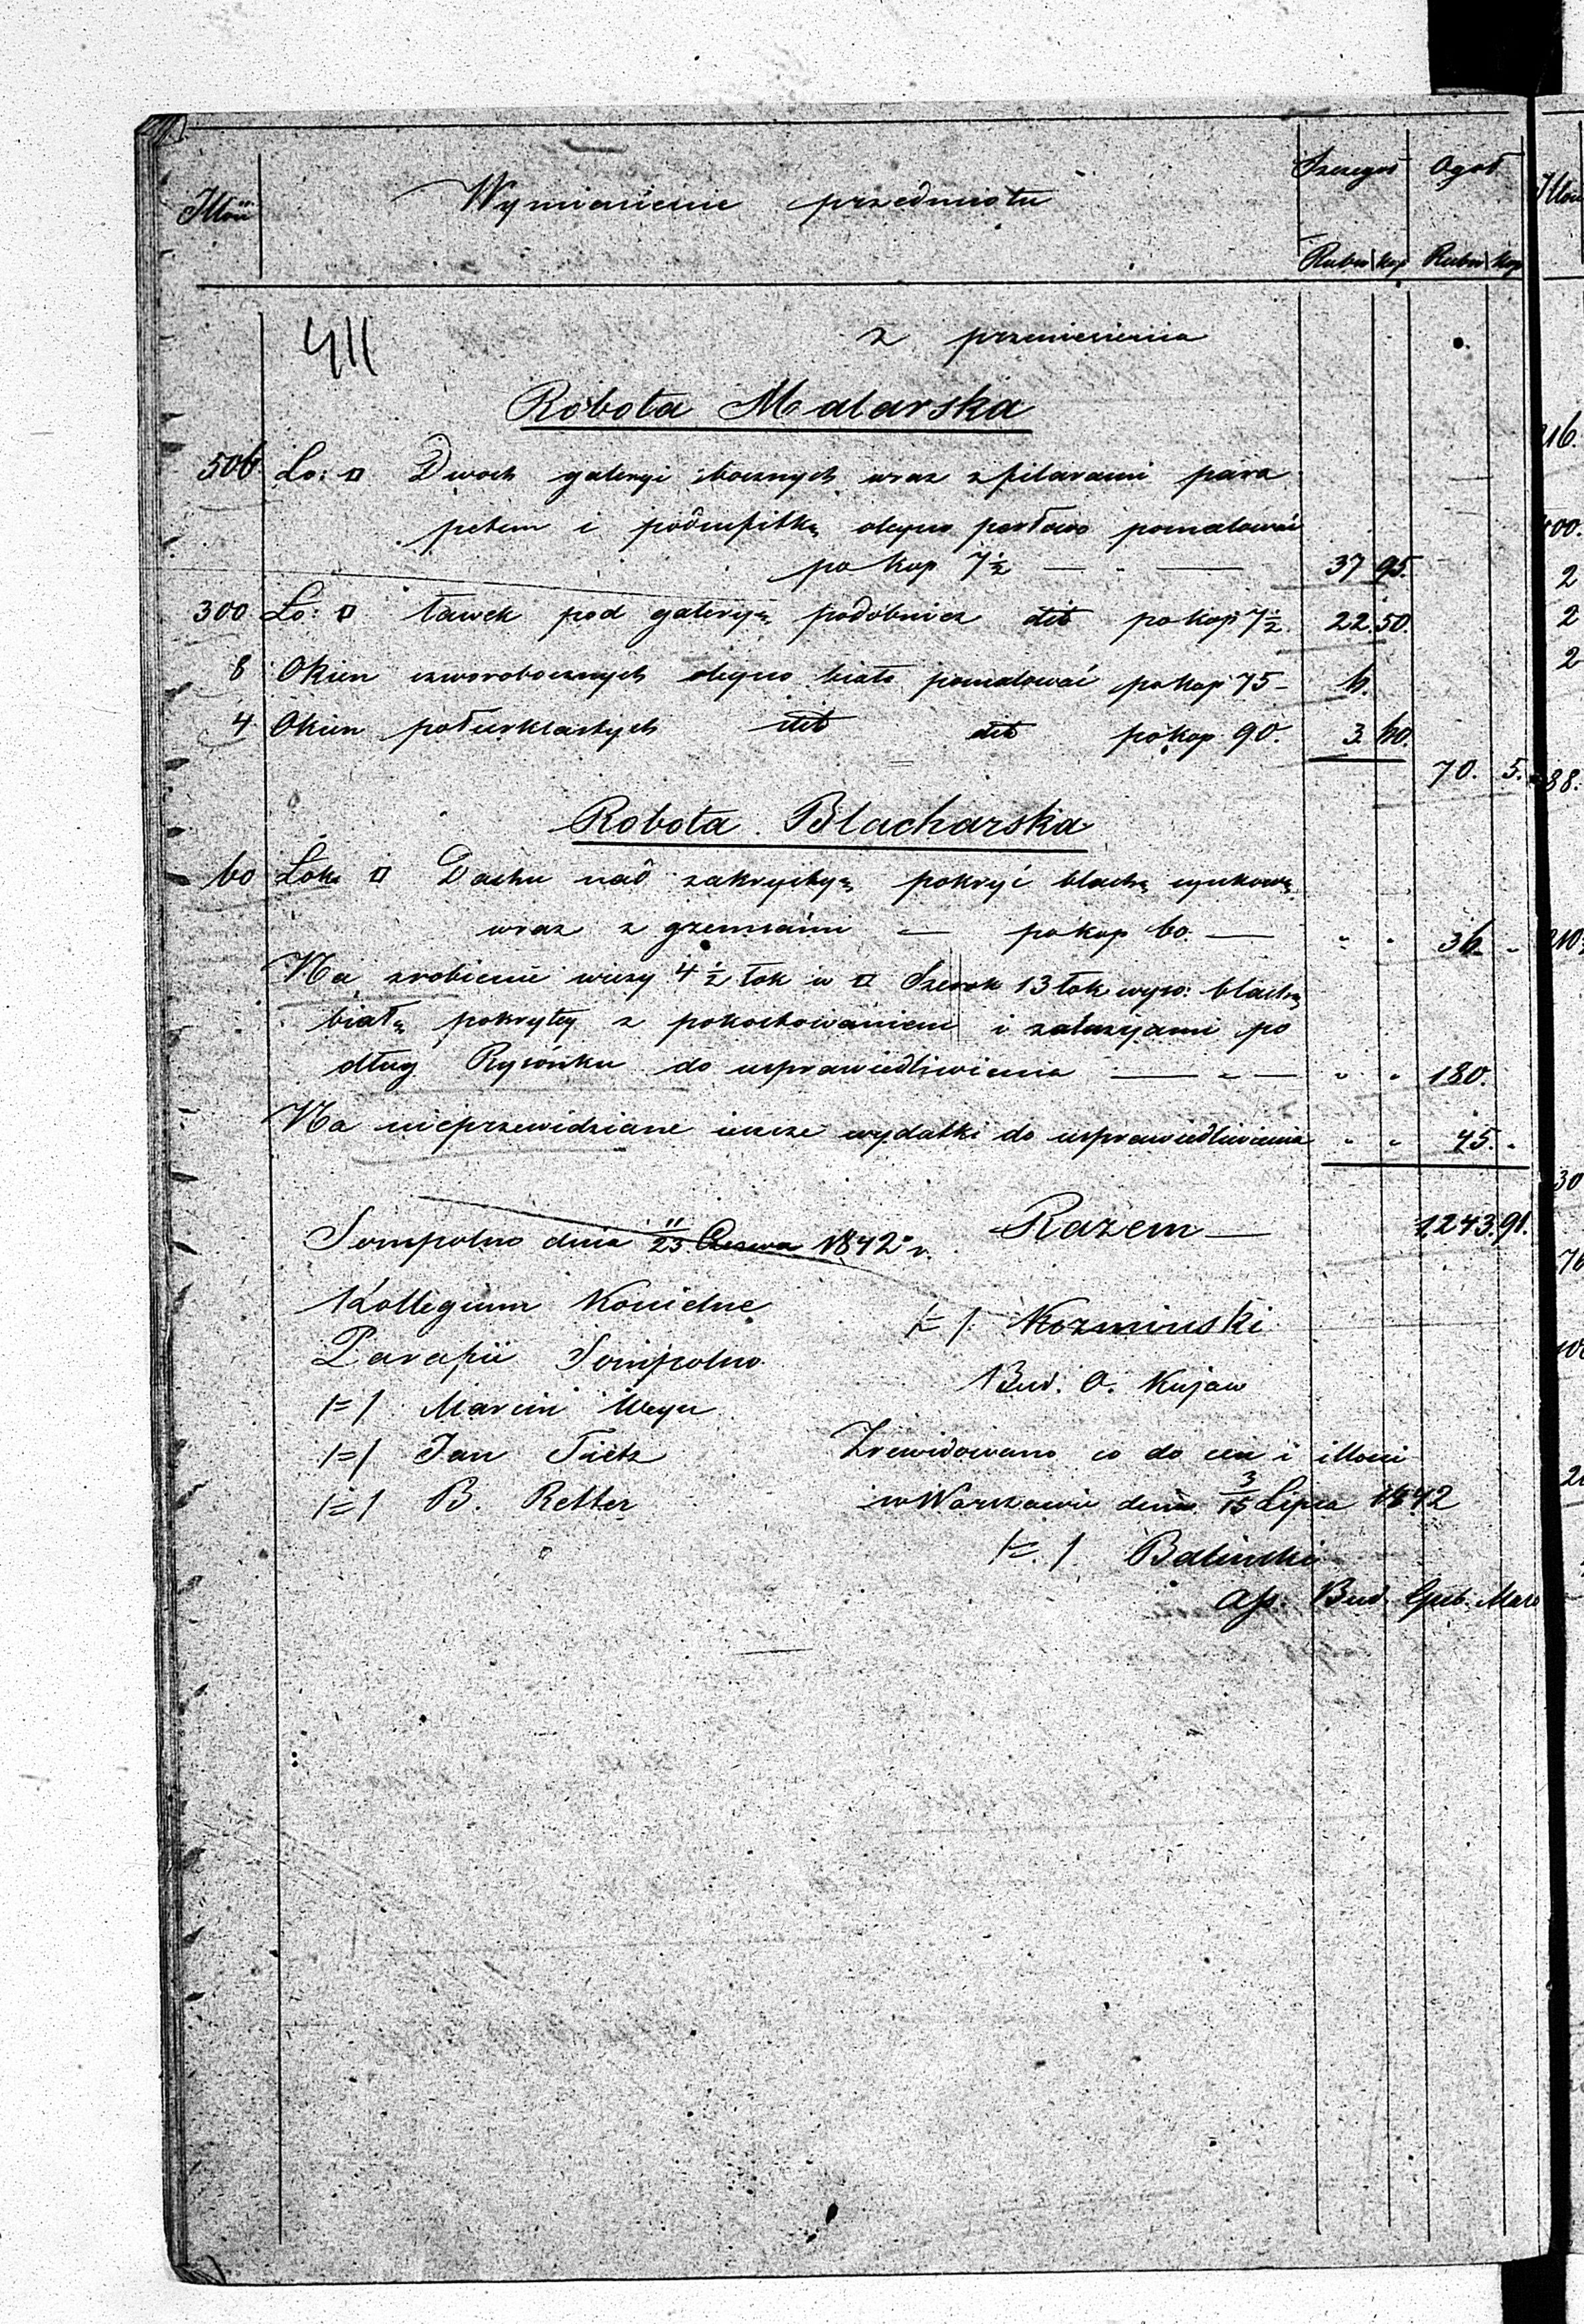 Illość Wymienienie przedmiotu Szczegół Ogół
Rubsr kop Rubsr kop
411 z przeniesienia
Robota Malarska
506 Ło: □ Dwoch galeryi bocznych wraz z filarami para
petem i podsufitką olejno perłowo pomalować
po kop 7½ — " — 37 95.
300 Ło: □ ławek pod galeryą podobnież dito po kop 7½ 22. 50.
8 Okien czworobocznych olejno biało pomalować po kop 75 - 6.
4 Okien połcyrklastych dito dito po kop 90. 3. 60.
70. 5.
Robota Blacharska
60 Łok □ Dachu nad zakrystyą pokryć blachą cynkową
wraz z gzemsami — po kop 60. — " " 36 "
Na zrobienie wieży 4½ łok w □ Szerok 13 łok wyso: blachą
białą pokrytej z pokostowaniem i żaluzyami po
dług Rysónku do usprawiedliwienia — " — " " 180.
Na nieprzewidziane insze wydatki do usprawiedliwienia " " 45. "
Razem — 1,243. 91.
Sompolno dnia 11/23 Czerwca 1842 r.
Kollegium Koscielne
Parafii Sompolno
/=/ Marcin Meyer
/=/ Jan Tietz
/=/ B. Retter
/=/ Kozminski
Bud. O. Kujaw
Zrewidowano co do cen i illosci
w Warszawie dnia 3/15 Lipca 1842
/=/ Balinski
Ass. Bud. Gub. Maz